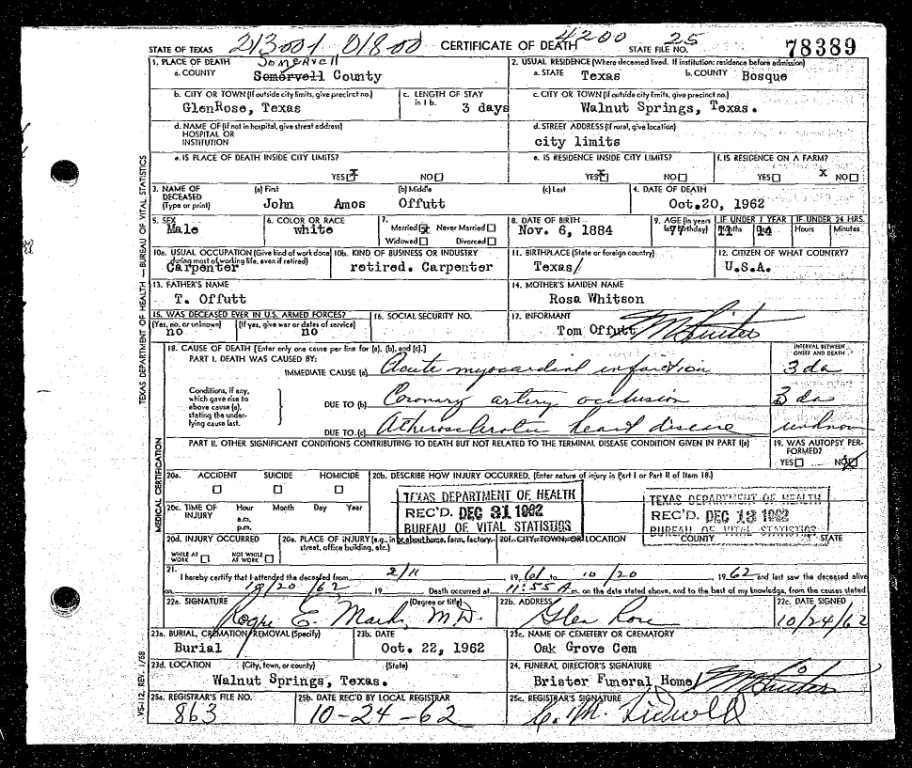 213001 01800 4200 25
STATE OF TEXAS CERTIFICATE OF DEATH STATE FILE NO. 78389
1. PLACE OF DEATH Somervell 2. USUAL RESIDENCE (Where deceased lived. If institution: residence before admission)
a. COUNTY Somervell County a. STATE Texas b. COUNTY Bosque
b. CITY OR TOWN (If outside city limits, give precinct no.) c. LENGTH OF STAY in 1 b. c. CITY OR TOWN (If outside city limits, give precinct no.)
GlenRose, Texas 3 days Walnut Springs, Texas.
d. NAME OF (If not in hospital, give street address) HOSPITAL OR INSTITUTION d. STREET ADDRESS (If rural, give location)
city limits
e. IS PLACE OF DEATH INSIDE CITY LIMITS? e. IS RESIDENCE INSIDE CITY LIMITS? f. IS RESIDENCE ON A FARM?
YES x NO YES x NO YES x NO
3. NAME OF DECEASED (Type or print) (a) First (b) Middle (c) Last 4. DATE OF DEATH
John Amos Offutt Oct.20, 1962
5. SEX 6. COLOR OR RACE 7. Married x Never Married 8. DATE OF BIRTH 9. AGE (In years last birthday) IF UNDER 1 YEAR IF UNDER 24 HRS.
Male white Widowed Divorced Nov. 6, 1884 77 Months 11 14 Hours Minutes
10a. USUAL OCCUPATION (Give kind of work done during most of working life, even if retired) 10b. KIND OF BUSINESS OR INDUSTRY 11. BIRTHPLACE (State or foreign country) 12. CITIZEN OF WHAT COUNTRY?
Carpenter retired. Carpenter Texas/ U.S.A.
13. FATHER'S NAME 14. MOTHER'S MAIDEN NAME
T. Offutt Rosa Whitson
15. WAS DECEASED EVER IN U.S. ARMED FORCES? 16. SOCIAL SECURITY NO. 17. INFORMANT
(Yes, no, or unknown) (If yes, give war or dates of service)
no no Tom Offutt
18. CAUSE OF DEATH [Enter only one cause per line for (a), (b), and (c).] INTERVAL BETWEEN ONSET AND DEATH
PART I. DEATH WAS CAUSED BY:
IMMEDIATE CAUSE (a) Acute myocardial infarction 3 da
Conditions, if any, which gave rise to above cause (a), stating the underlying cause last.
DUE TO (b) Coronary artery occlusion 3 da
DUE TO (c) Atherosclerotic heart disease unknown
PART II. OTHER SIGNIFICANT CONDITIONS CONTRIBUTING TO DEATH BUT NOT RELATED TO THE TERMINAL DISEASE CONDITION GIVEN IN PART I(a) 19. WAS AUTOPSY PERFORMED?
YES NO
20a. ACCIDENT SUICIDE HOMICIDE 20b. DESCRIBE HOW INJURY OCCURRED. (Enter nature of injury in Part I or Part II of Item 18.)
TEXAS DEPARTMENT OF HEALTH
REC'D. DEC 31 1962
BUREAU OF VITAL STATISTICS
TEXAS DEPARTMENT OF HEALTH
REC'D. DEC 13 1962
BUREAU OF VITAL STATISTICS
20c. TIME OF INJURY Hour a.m. p.m. Month Day Year
20d. INJURY OCCURRED 20e. PLACE OF INJURY (e.g., in or about home, farm, factory, street, office building, etc.) 20f. CITY, TOWN, OR LOCATION COUNTY STATE
WHILE AT WORK NOT WHILE AT WORK
21. I hereby certify that I attended the deceased from 2/11 1961 to 10/20 1962 and last saw the deceased alive
on 10/20/62 19 Death occurred at 11:55 A m. on the date stated above, and to the best of my knowledge, from the causes stated
22a. SIGNATURE (Degree or title) 22b. ADDRESS 22c. DATE SIGNED
Roger E. Marks, M.D. Glen Rose 10/24/62
23a. BURIAL, CREMATION REMOVAL (Specify) 23b. DATE 23c. NAME OF CEMETERY OR CREMATORY
Burial Oct. 22, 1962 Oak Grove Cem
23d. LOCATION (City, town, or county) (State) 24. FUNERAL DIRECTOR'S SIGNATURE
Walnut Springs, Texas. Brister Funeral Home/
25a. REGISTRAR'S FILE NO. 25b. DATE REC'D BY LOCAL REGISTRAR 25c. REGISTRAR'S SIGNATURE
863 10-24-62 C. M. Tidwell
TEXAS DEPARTMENT OF HEALTH — BUREAU OF VITAL STATISTICS
MEDICAL CERTIFICATION
VS-112, REV. 1/58